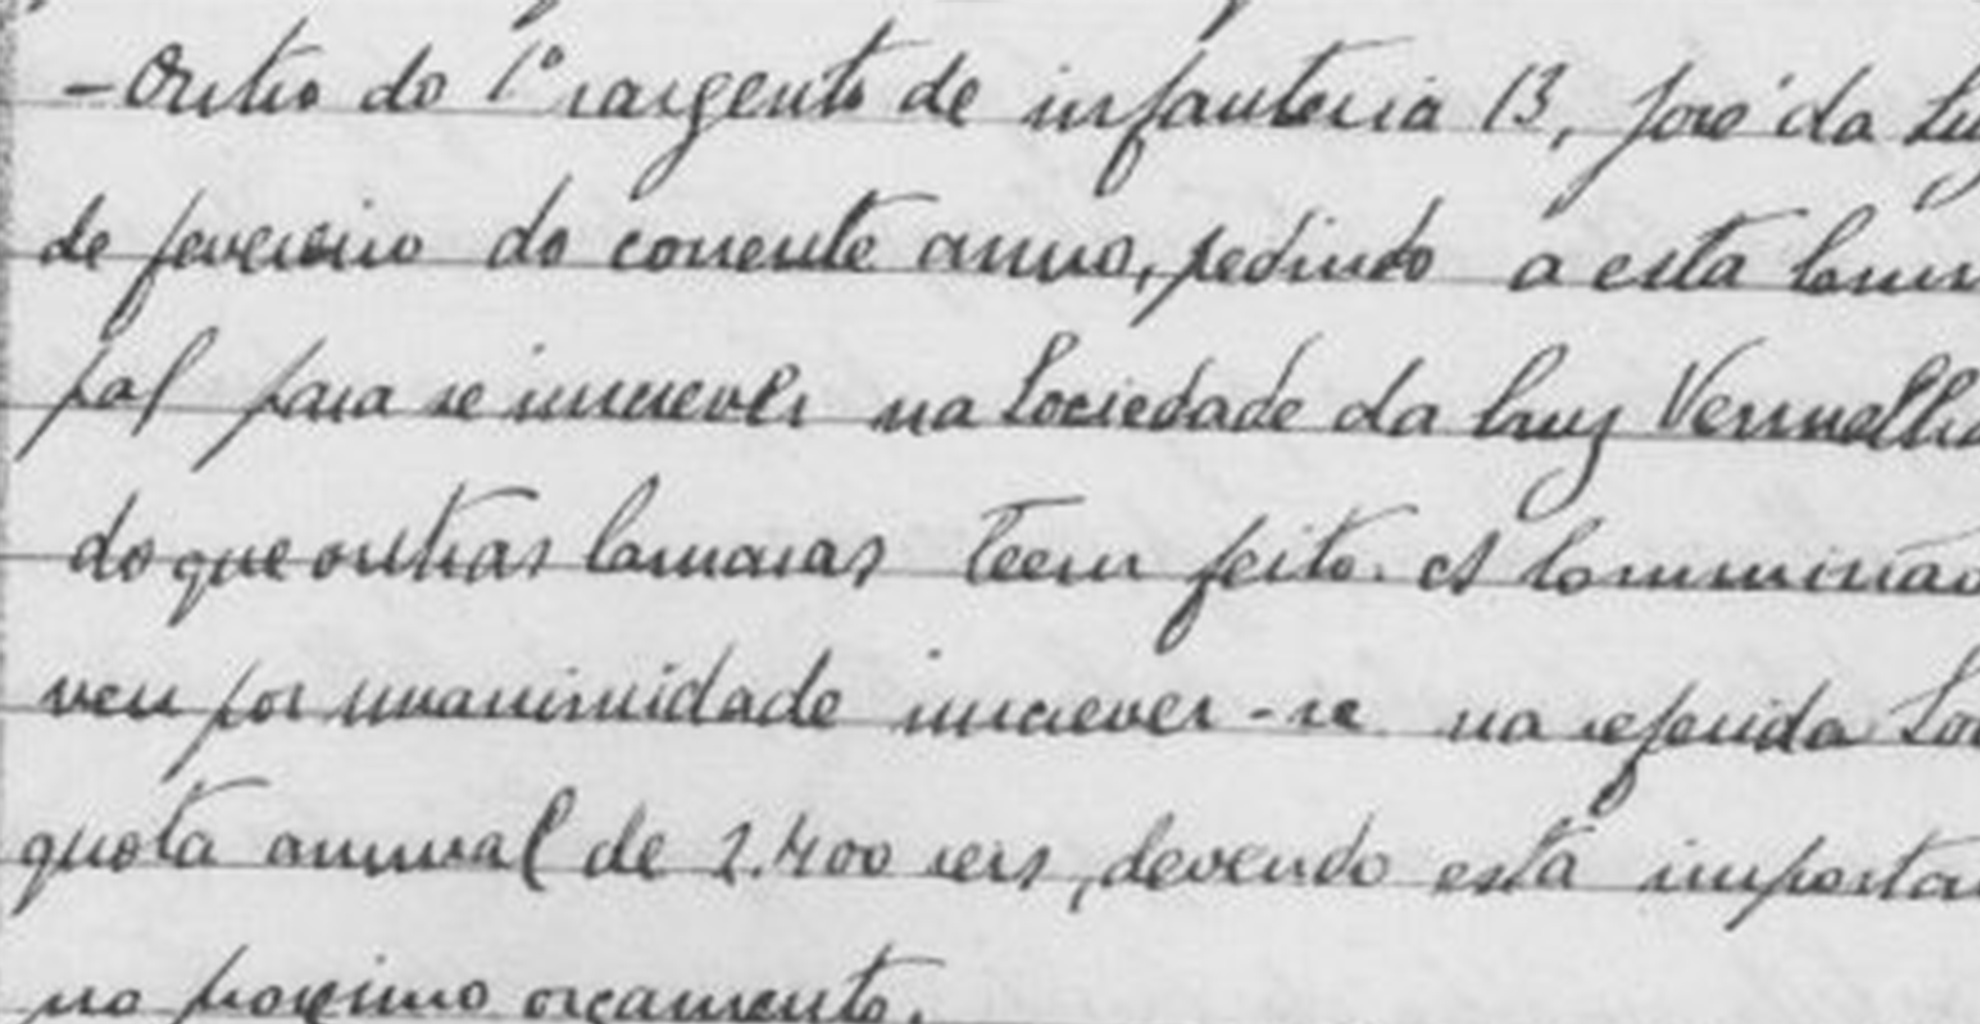 - Outro do 1º sargento de infanteria 13, José da Lu
de fevereiro do corrente anno, pedindo a esta Com
pal para se inscrever na Sociedade da Cruz Vermelha
do que outras Camaras teem feito. A Commissão
veu por unanimidade inscrever-se na referida So
quota annual de 2.400 reis, devendo esta importa
no proximo orçamento.